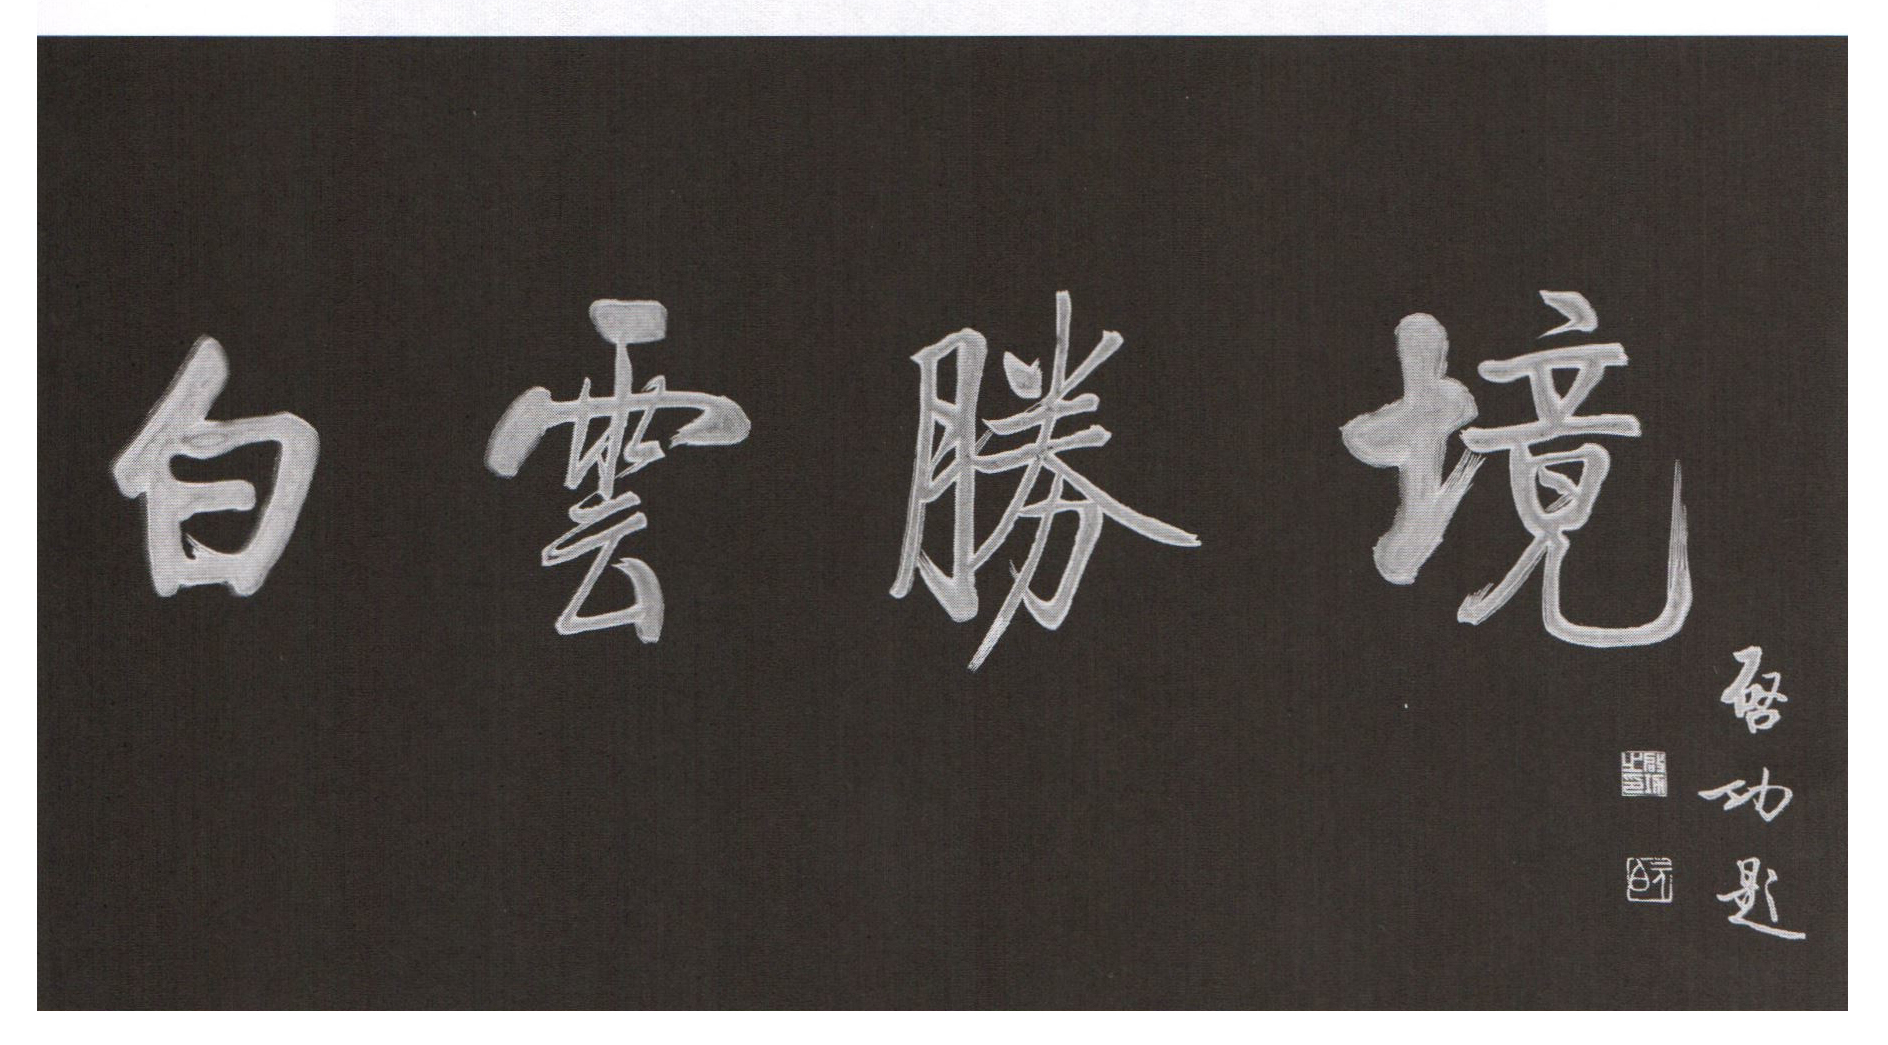 白雲勝境
啓功題